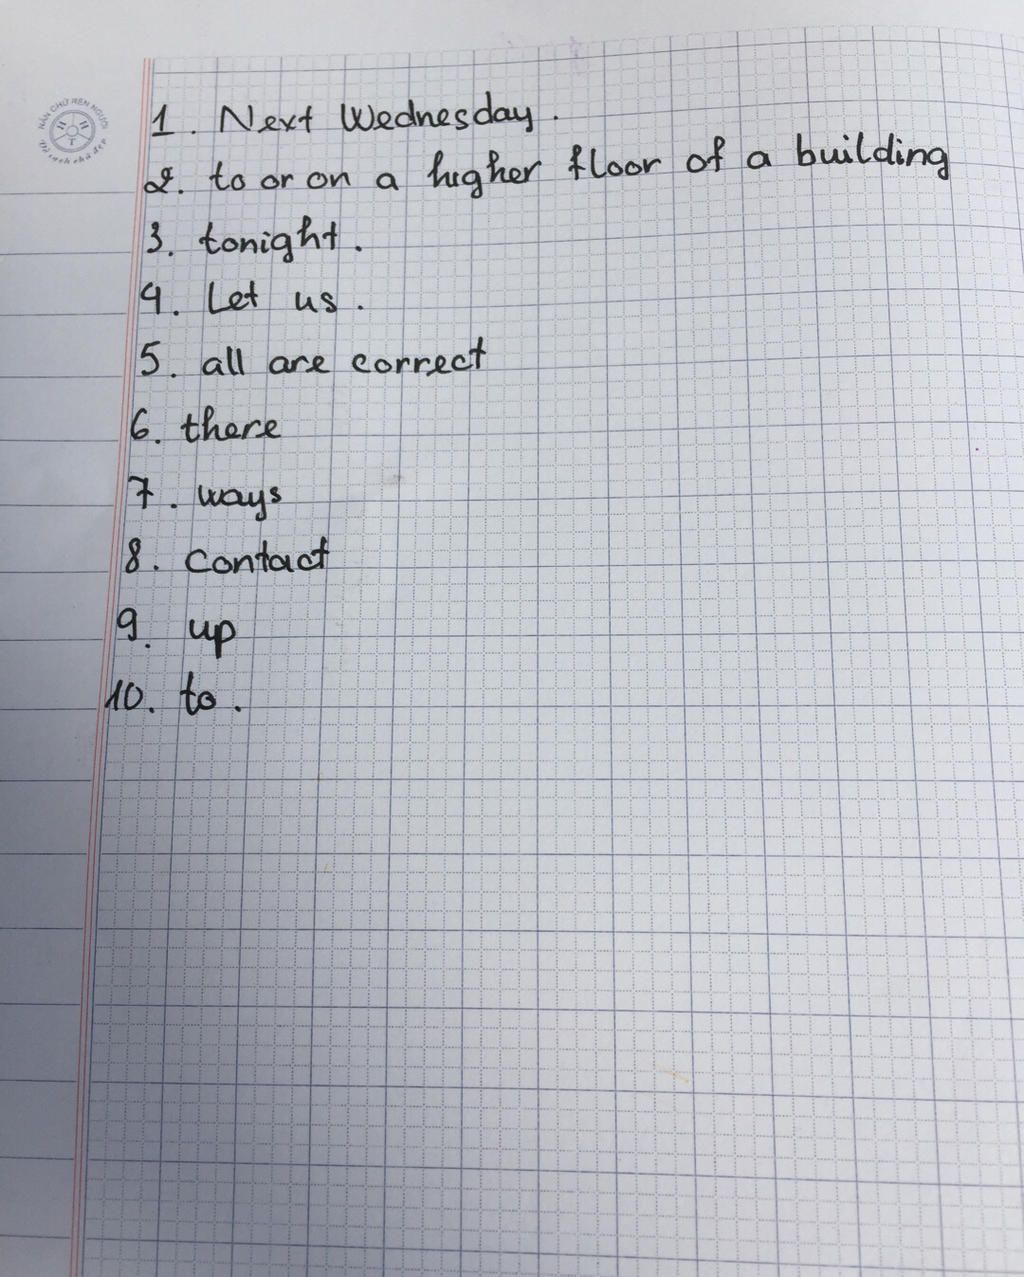 NẮN CHỮ RÈN NGƯỜI
1. Next Wednesday.
2. to or on a higher floor of a building
3. tonight.
4. Let us.
5. all are correct
6. there
7. ways
8. contact
9. up
10. to.